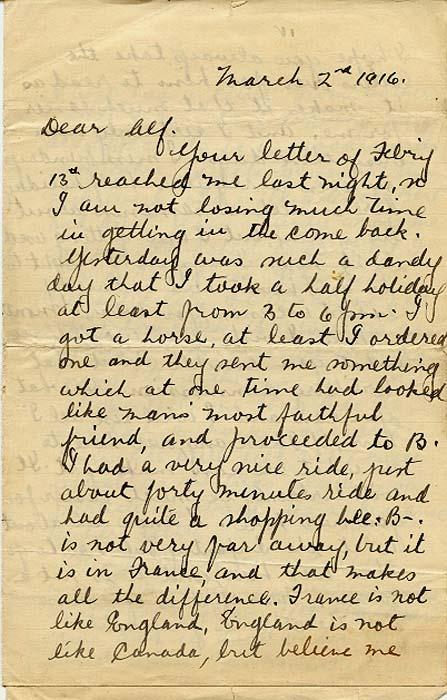 March 2nd 1916.
Dear Alf.
Your letter of Febry
13th reached me last night, so
I am not losing much time
in getting in the come back.
Yesterday was such a dandy
day that I took a half holiday
at least from 3 to 6 pm. I
got a horse, at least I ordered
one and they sent me something
which at one time had looked
like man's most faithful
friend, and proceeded to B.
I had a very nice ride, just
about forty minutes ride and
had quite a shopping bee. B-.
is not very far away, but it
is in France, and that makes
all the difference. France is not
like England, England is not
like Canada, but believe me